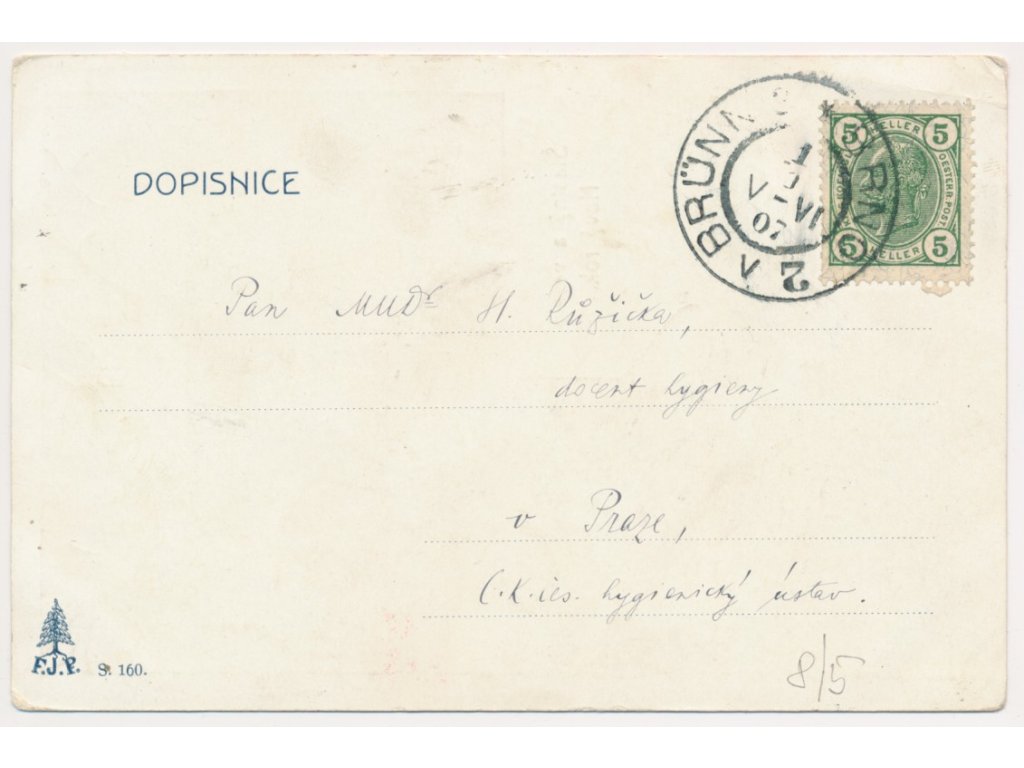 DOPISNICE
BRÜNN 2 * BRNO 2
1
V - VI
07
5 HELLER 5
OESTERR. POST
5 HELLER 5
Pan MUDr H. Růžička,
docent hygieny
v Praze,
C. K. čes. hygienický ústav.
F.J.P. S. 160.
8/5